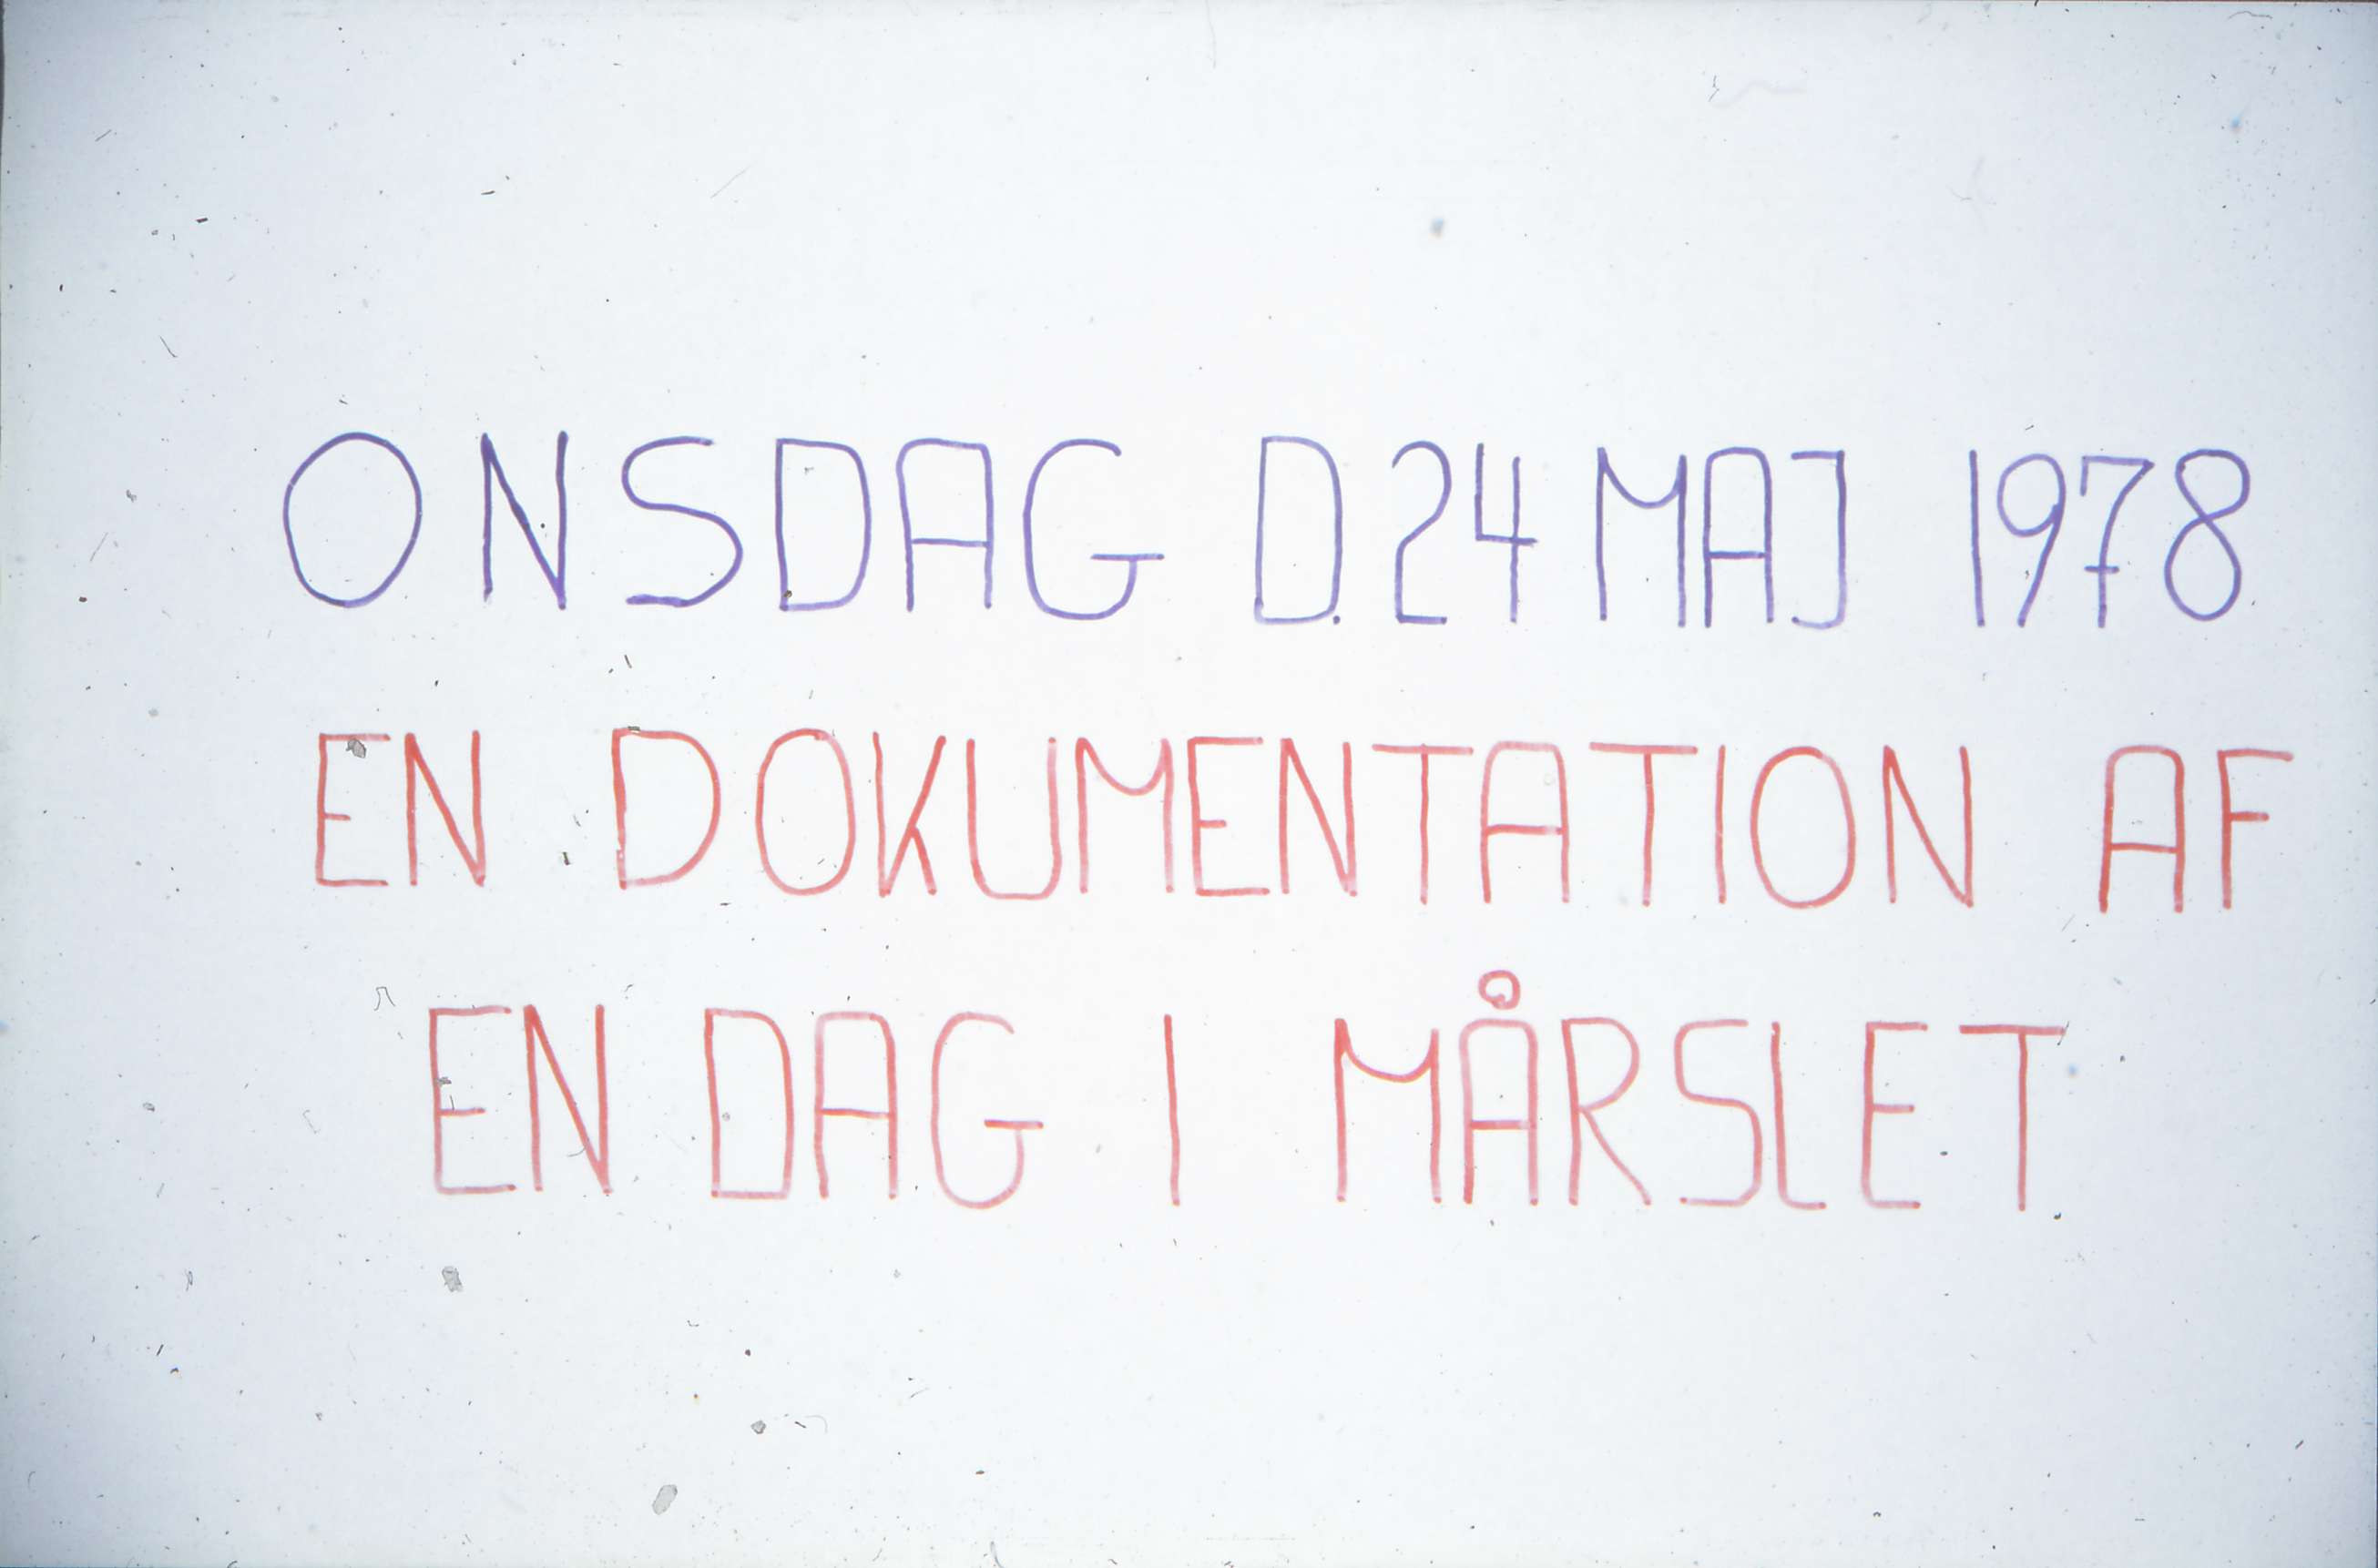 ONSDAG D.24 MAJ 1978
EN DOKUMENTATION AF
EN DAG I MÅRSLET